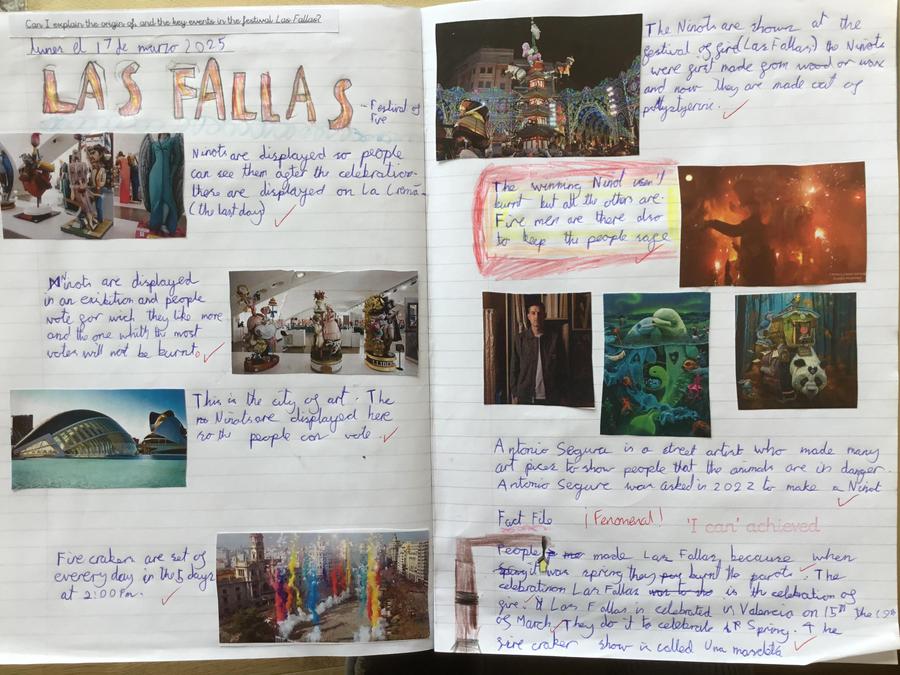 Can I explain the origin of, and the key events in the festival Las Fallas?
lunes el 17 de marzo 2025
LAS FALLAS
- Festival of
Fire
Ninots are displayed so people
can see them after the celebration.
these are displayed on La Cremà
(the last day)
Ninots are displayed
in an exibition and people
vote for wich they like more
and the one whith the most
votes will not be burnt.
This is the city of art. The
Ninots are displayed here
so the people can vote.
Fire craker are set of
everery day in the 5 days
at 2:00 Pm.
The Ninots are shown at the
festival of fire (Las Fallas) the Ninots
were first made from wood or wax
and now they are made out of
pollystyerine.
The winning Ninot usen't
burnt but all the others are.
Fire men are there also
to keep the people safe
Antonio Segura is a street artist who made many
art pices to show people that the animals are in danger.
Antonio Segure was asked in 2022 to make a Ninot
Fact File ¡Fenomenal! 'I can' achieved
People made Las Fallas because when
it was spring they burnt the parots. The
celebration Las Fallas is the celebration of
fire. Las Fallas is celebrated in Valencia on 15th the 19th
of March. They do it to celebrate Spring. The
fire craker show is called Una mascletá